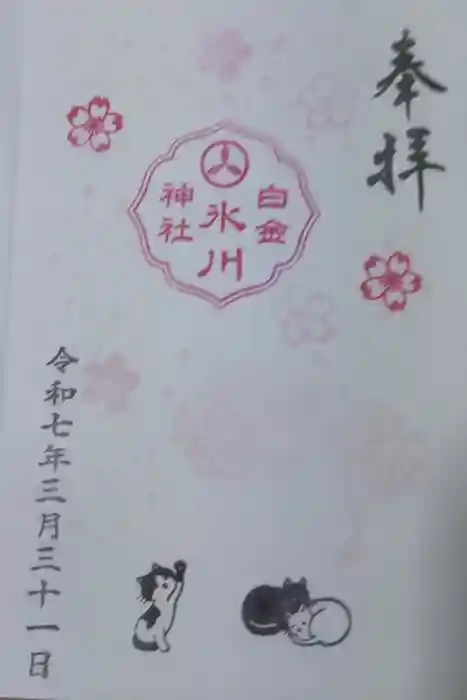 奉拝
白金
氷川
神社
令和七年三月三十一日